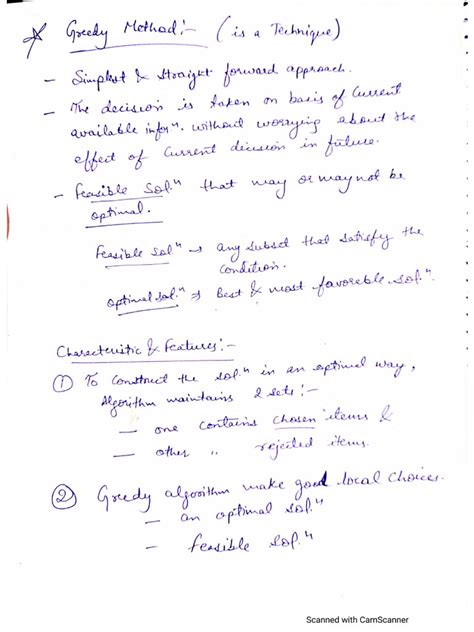 ☆ Greedy Method :- ( is a Technique )
- Simplest & straight forward approach.
- The decision is taken on basis of current
available inforⁿ. without worrying about the
effect of current decision in future.
- feasible Sol.ⁿ that may or may not be
optimal.
feasible solⁿ → any subset that satisfy the
condition.
optimal sol.ⁿ ⇒ Best & most favoreble sol.ⁿ
Characteristic & Features :-
① To construct the sol.ⁿ in an optimal way,
Algorithm maintains 2 sets :-
- one contains chosen items &
- other " rejected items.
② Greedy algorithm make good local choices.
- an optimal sol.ⁿ
- feasible sol.ⁿ
Scanned with CamScanner